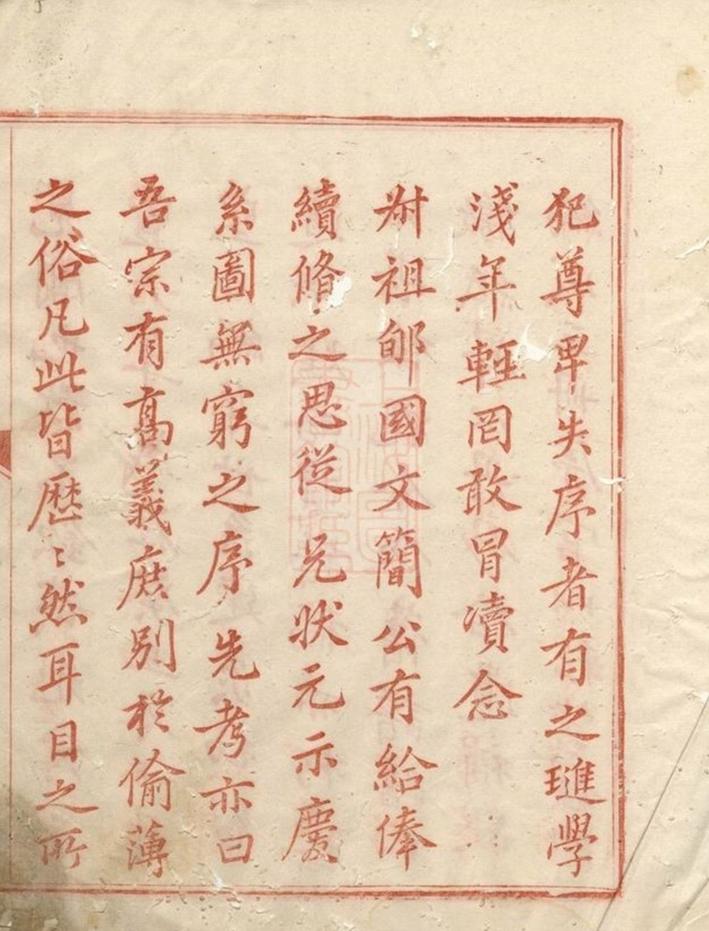 犯尊卑失序者有之璡學
淺年輕罔敢冒瀆念
叔祖郇國文簡公有給俸
續脩之思從 兄狀元示慶
系圖無窮之序先考亦曰
吾宗有髙義庶別於偷薄
之俗凡此皆歷〻然耳目之所